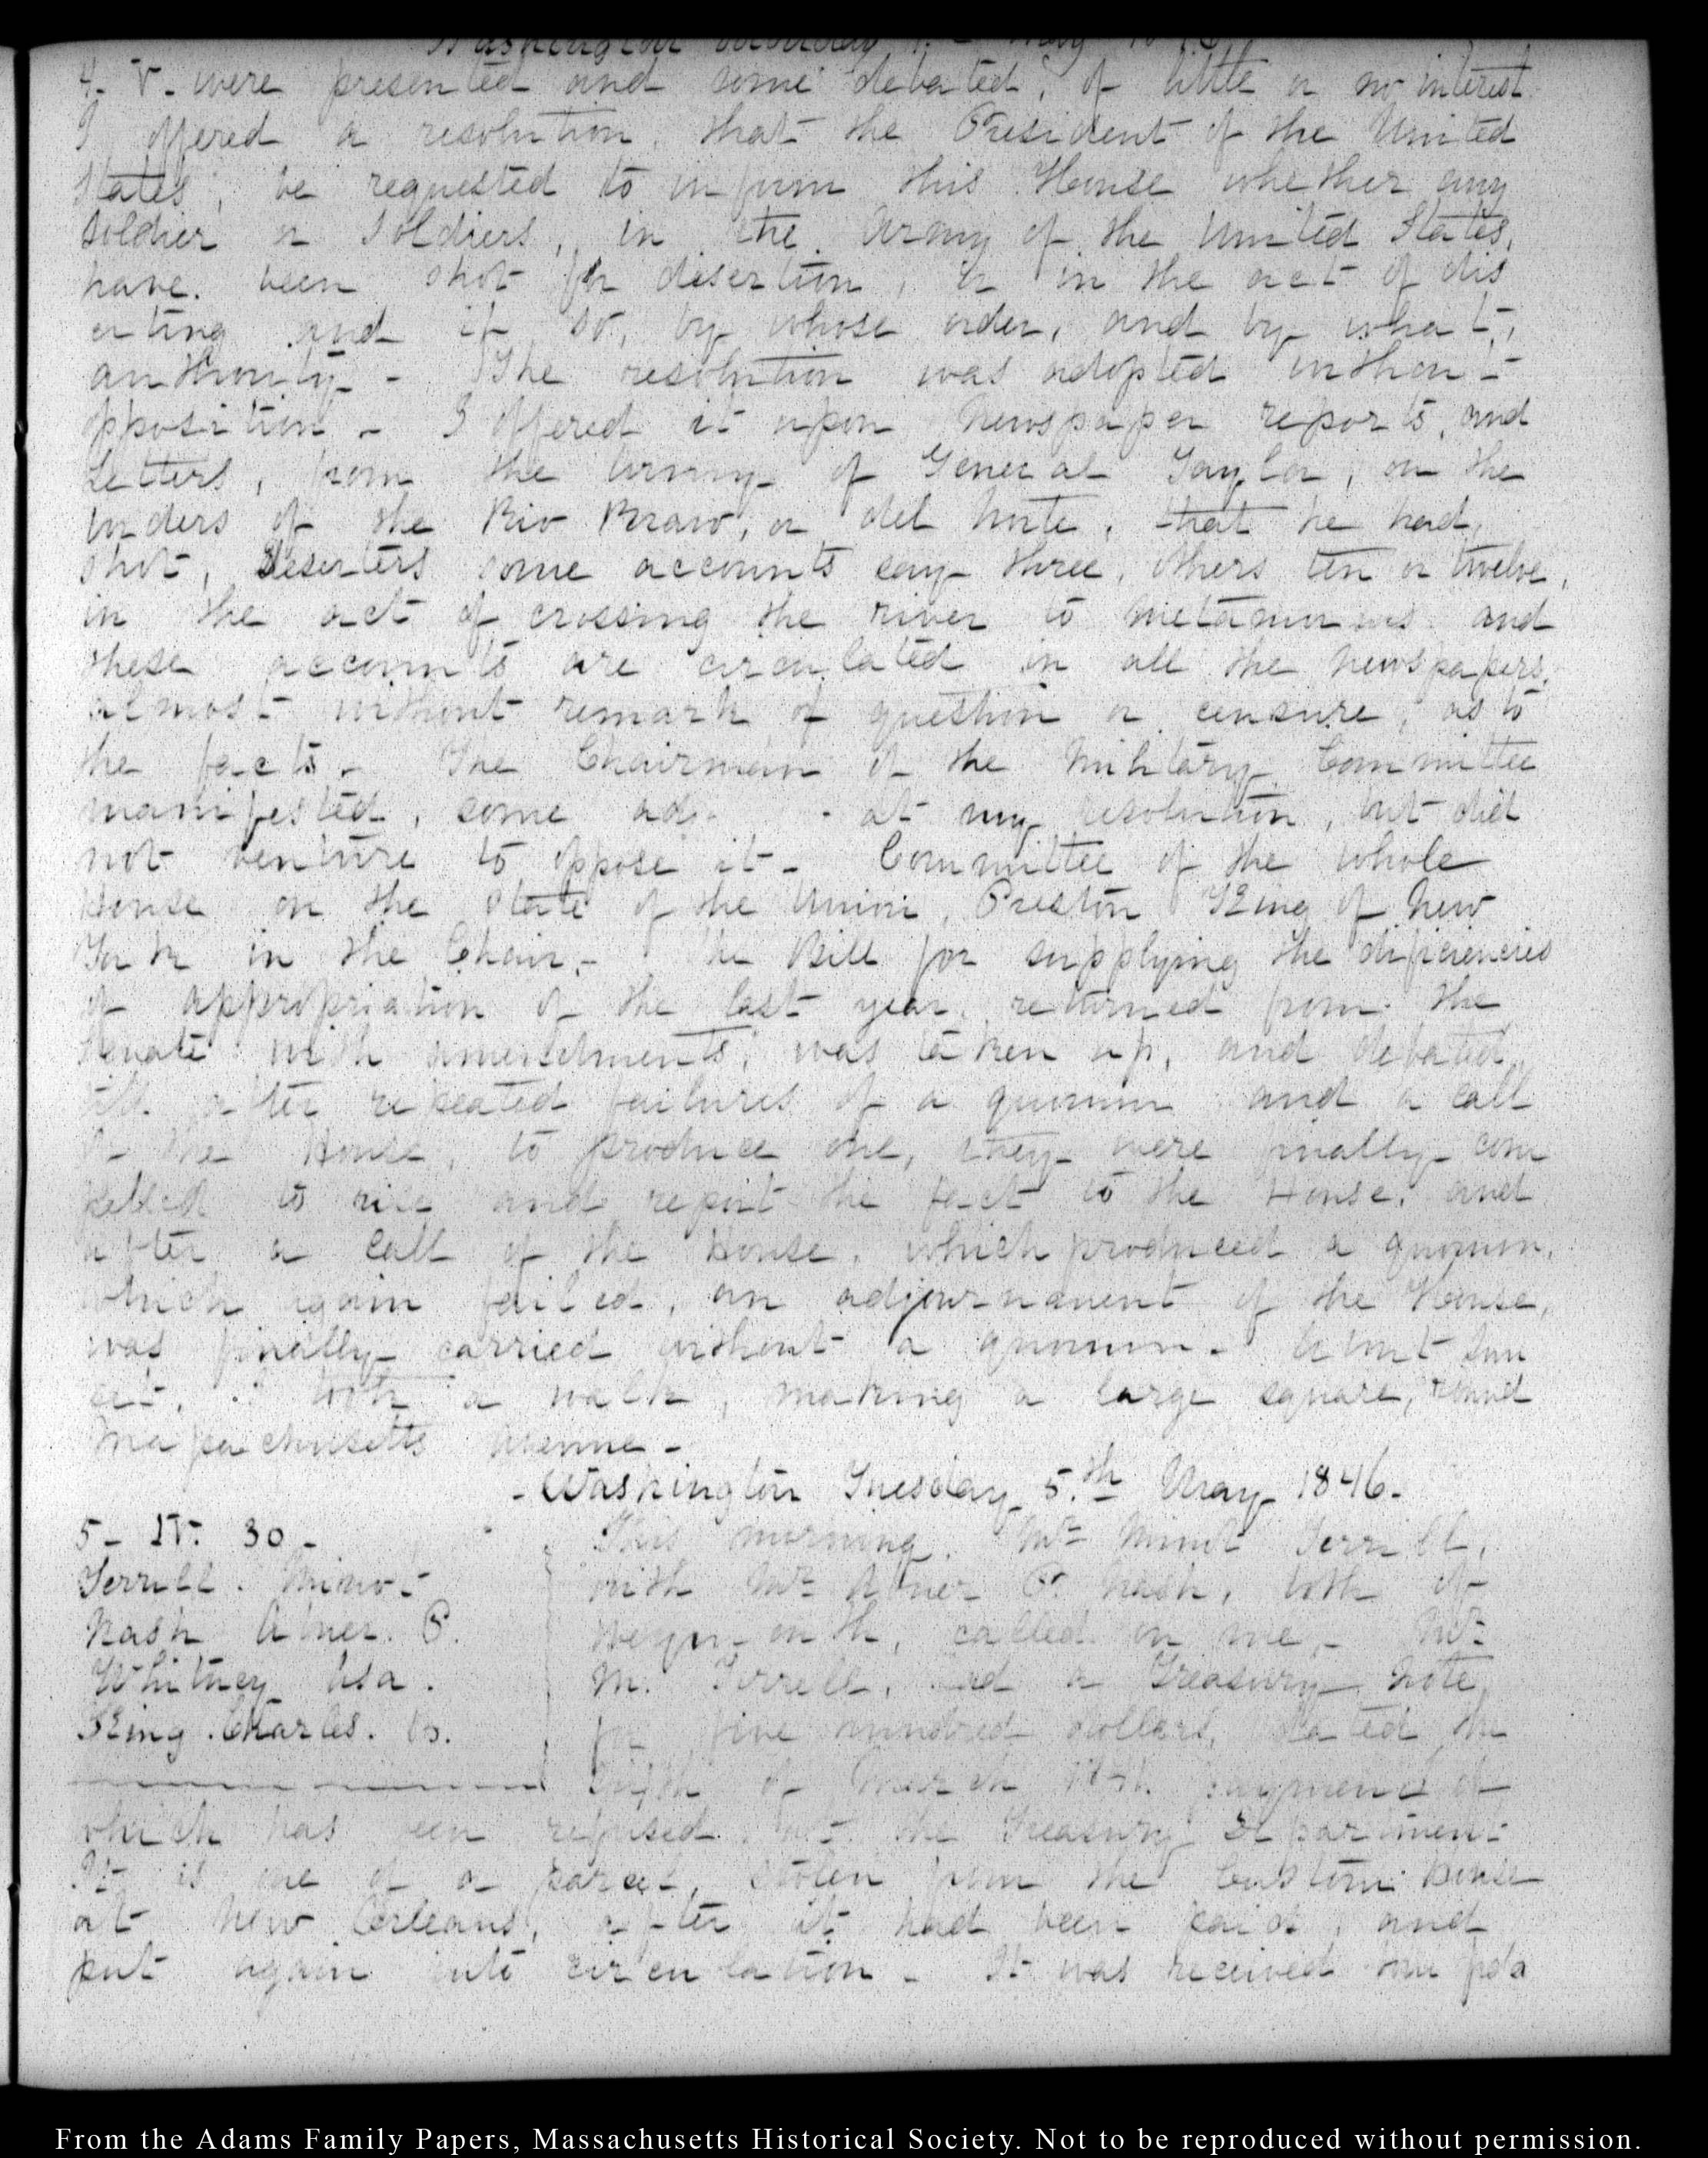 Washington Monday 4. May 1846
4. V. were presented and some debated, of little or no interest
I offered a resolution, that the President of the United
States, be requested to inform this House whether any
soldier or soldiers, in the Army of the United States,
have. been shot for disertion, or in the act of dis
erting and if so, by whose order, and by what,
authority - The resolution was adopted without
opposition - I offered it upon Newspaper reports, and
Letters, from the Army of General Taylor, on the
borders of the Rio Bravo, or del Norte, that he had,
shot, Deserters some accounts say three, others ten or twelve,
in the act of crossing the river to Metamoras and
these accounts are circulated in all the newspapers,
almost without remark of question or censure, as to
the facts. The Chairman of the Military Committee
manifested, some at my resolution, but did
not venture to oppose it - Committee of the whole
House on the state of the Union, Preston King of New
York in the Chair. - The Bill for supplying the dificiencies
of appropriation of the last year, returned from the
Senate with amendments, was taken up, and debated,
till after repeated failures of a quorum and a call
of the House, to produce one, they were finally com
pelled to rise and report the fact to the House, and
after a call of the House, which produced a quorum,
which again failed, an adjournament of the House,
was finally carried without a quorum - About Sun
set, I took a walk, making a large square, round
Massachusetts Avenue -
- Washington Tuesday 5.th May 1846.
5 - IV. 30 -
Terrill. Minot -
Nash Abner. P.
Whitney Asa.
King. Charles. B.
This morning. Mr Minot Terrill,
with Mr Abner P. Nash, both of
Weymouth, called on me, - Mr
M. Tirrell, had a Treasury note,
for five hundred dollars, dated the
of March payment of
which has been refused at the Treasury Department
It is one of a parcel, stolen from the Custom House
at New Orleans, after it had been paid, and
put again into circulation - It was received